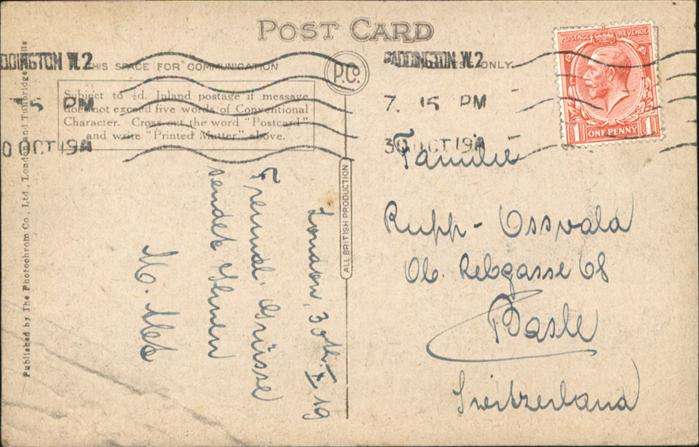 POST CARD
THIS SPACE FOR COMMUNICATION
P.C.
ONLY.
Subject to ½d. Inland postage if message
does not exceed five words of Conventional
Character. Cross out the word "Postcard"
and write "Printed Matter" above.
PADDINGTON W.2
7. 15 PM
30 OCT 19
DDINGTON W.2
15 PM
0 OCT 19
POSTAGE REVENUE
1 ONE PENNY 1
London, 30th X 19
Freundl. Grüsse
sendet Ihnen
M.
Familie
Rupp-Osswald
Ob. Rebgasse 68
Basle
Switzerland
ALL BRITISH PRODUCTION
Published by The Photochrom Co., Ltd., London and Tunbridge Wells